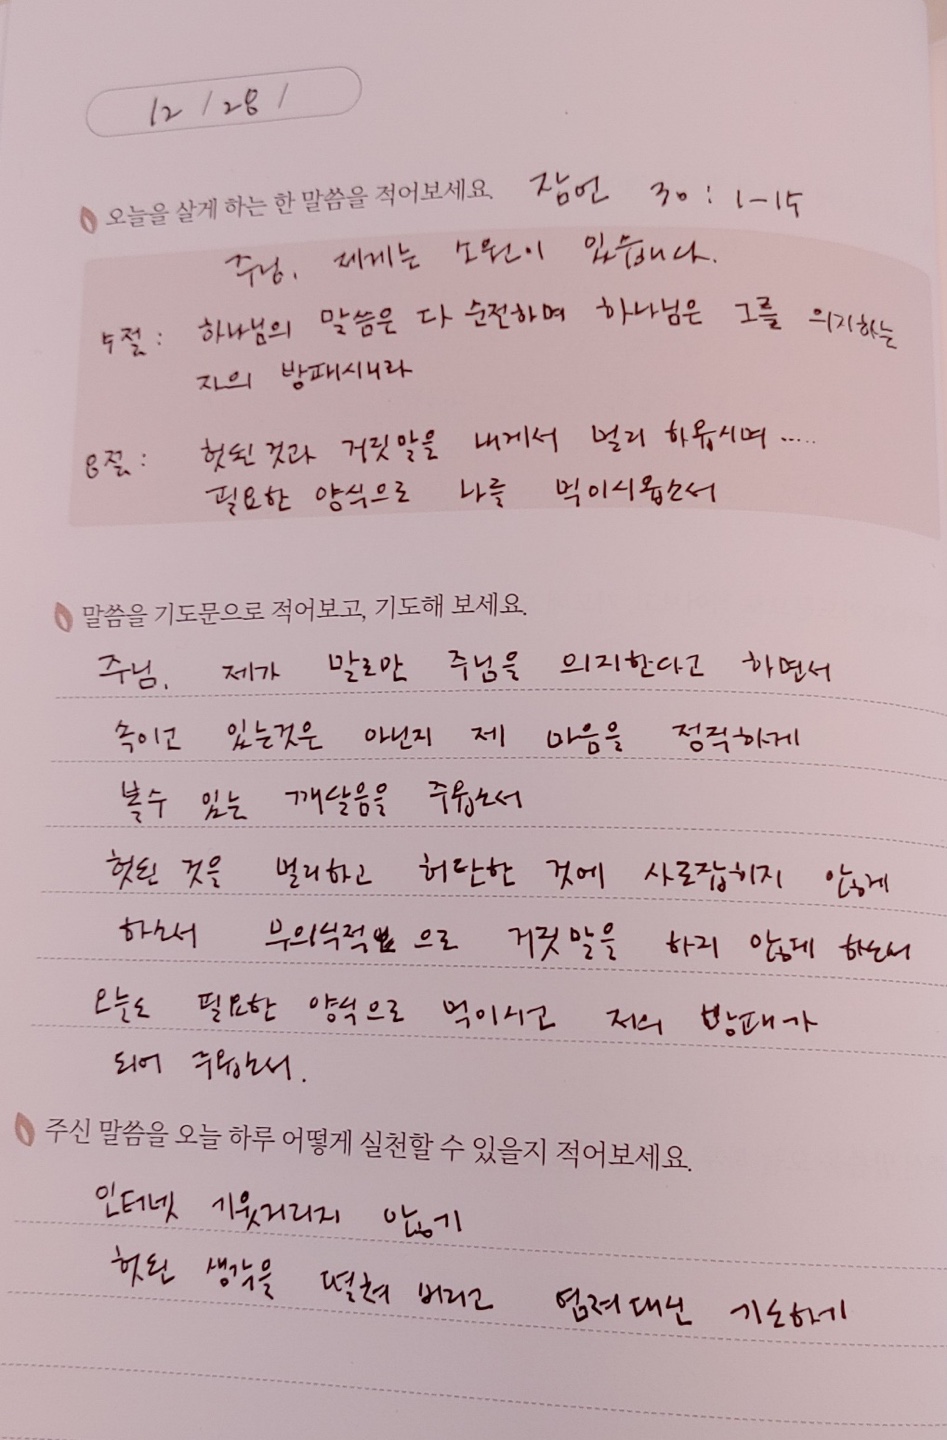 12 / 28 /
오늘을 살게 하는 한 말씀을 적어보세요. 잠언 30 : 1-15
주님, 제게는 소원이 있습니다.
5절 : 하나님의 말씀은 다 순전하며 하나님은 그를 의지하는
자의 방패시니라
8절 : 헛된 것과 거짓말을 내게서 멀리 하옵시며 .....
필요한 양식으로 나를 먹이시옵소서
말씀을 기도문으로 적어보고, 기도해 보세요.
주님, 제가 말로만 주님을 의지한다고 하면서
속이고 있는것은 아닌지 제 마음을 정직하게
볼수 있는 깨달음을 주옵소서
헛된 것을 멀리하고 허탄한 것에 사로잡히지 않게
하소서 무의식적 으로 거짓말을 하지 않게 하소서
오늘도 필요한 양식으로 먹이시고 저의 방패가
되어 주옵소서.
주신 말씀을 오늘 하루 어떻게 실천할 수 있을지 적어보세요.
인터넷 기웃거리지 않기
헛된 생각을 떨쳐 버리고 염려대신 기도하기